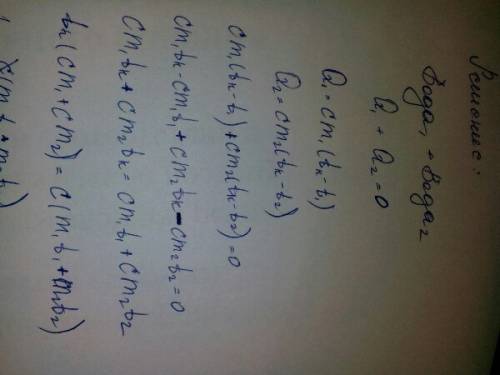 Решение:
Вода₁ + Вода₂
Q₁ + Q₂ = 0
Q₁ = cm₁(tк - t₁)
Q₂ = cm₂(tк - t₂)
cm₁(tк - t₁) + cm₂(tк - t₂) = 0
cm₁tк - cm₁t₁ + cm₂tк - cm₂t₂ = 0
cm₁tк + cm₂tк = cm₁t₁ + cm₂t₂
tк(cm₁ + cm₂) = c(m₁t₁ + m₂t₂)